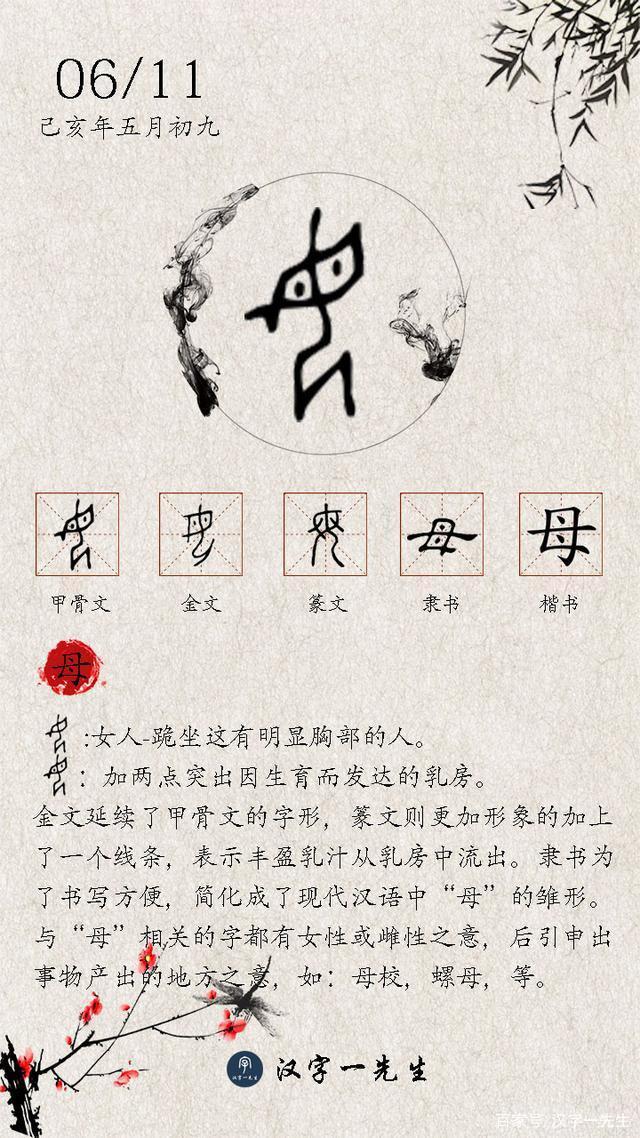 06/11
己亥年五月初九
甲骨文 金文 篆文 隶书 楷书
母 母
母
:女人-跪坐这有明显胸部的人。
：加两点突出因生育而发达的乳房。
金文延续了甲骨文的字形，篆文则更加形象的加上
了一个线条，表示丰盈乳汁从乳房中流出。隶书为
了书写方便，简化成了现代汉语中“母”的雏形。
与“母”相关的字都有女性或雌性之意，后引申出
事物产出的地方之意，如：母校，螺母，等。
汉字一先生
百家号/汉字一先生